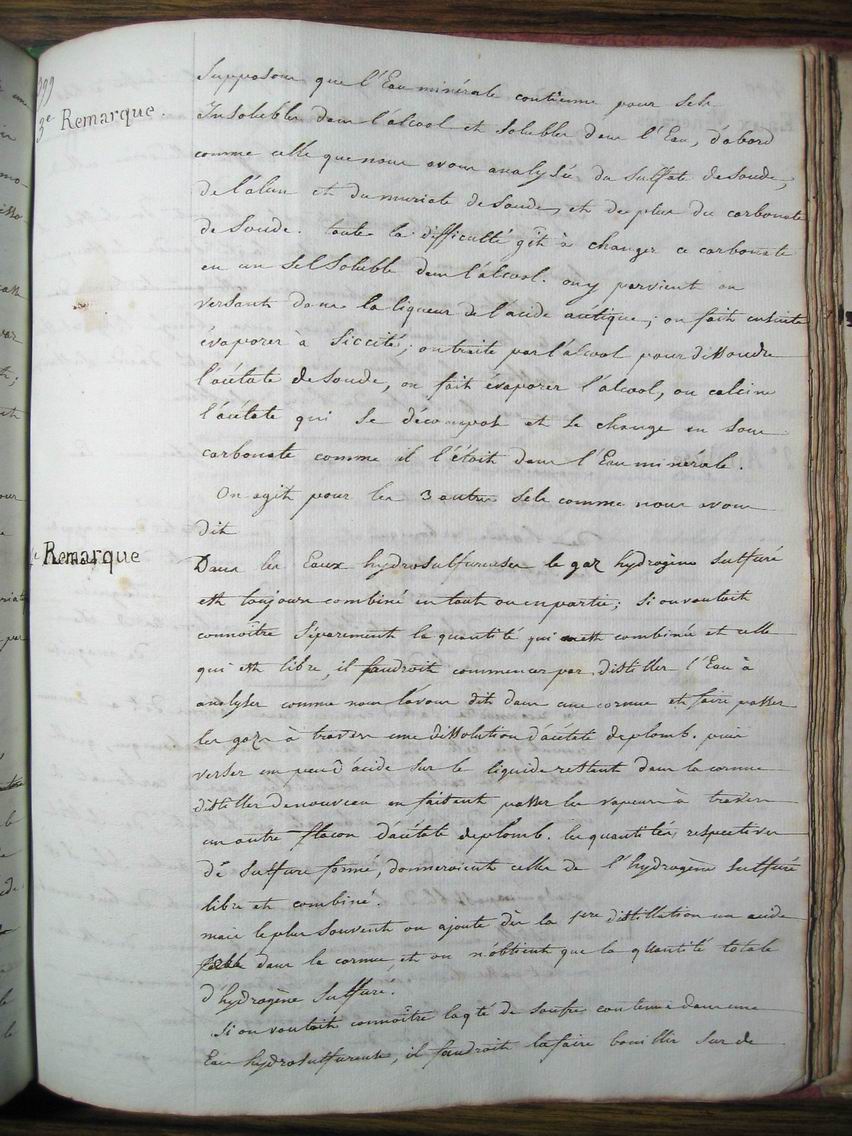 3e Remarque.
Supposons que l'Eau minérale contienne pour sels
Insolubles dans l'alcool et solubles dans l'Eau, d'abord
comme celle que nous avons analysée du sulfate de soude,
de l'alun et du muriate de soude, et de plus du carbonate
de soude. toute la difficulté gît à changer ce carbonate
en un sel soluble dans l'alcool. on y parvient en
versant dans la liqueur de l'acide acétique; on fait ensuite
évaporer à siccité; on traite par l'alcool pour dissoudre
l'acétate de soude, on fait évaporer l'alcool, on calcine
l'acétate qui se décompose et se change en sous
carbonate comme il l'étoit dans l'Eau minérale.
On agit pour les 3 autres sels comme nous avons
dit
Remarque
Dans les Eaux hydrosulfureuses le gaz hydrogène sulfuré
est toujours combiné en tout ou en partie; si on vouloit
connoître séparement la quantité qui est combinée et celle
qui est libre, il faudroit commencer par distiller l'Eau à
analyser comme nous l'avons dit dans une cornue et faire passer
les gazs à travers une dissolution d'acétate de plomb. puis
verser un peu d'acide sur le liquide restant dans la cornue
distiller de nouveau en faisant passer les vapeurs à travers
un autre flacon d'acétate de plomb. les quantités respectives
de sulfure formé, donneroient celles de l'hydrogène sulfuré
libre et combiné.
mais le plus souvent on ajoute dès la 1ere distillation un acide
faible dans la cornue et on n'obtient que la quantité totale
d'hydrogène sulfuré.
Si on vouloit connoître la qté de soufre contenue dans une
Eau hydrosulfureuse, il faudroit la faire bouillir sur de